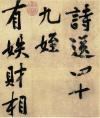 詩送四十
九姪
有財相